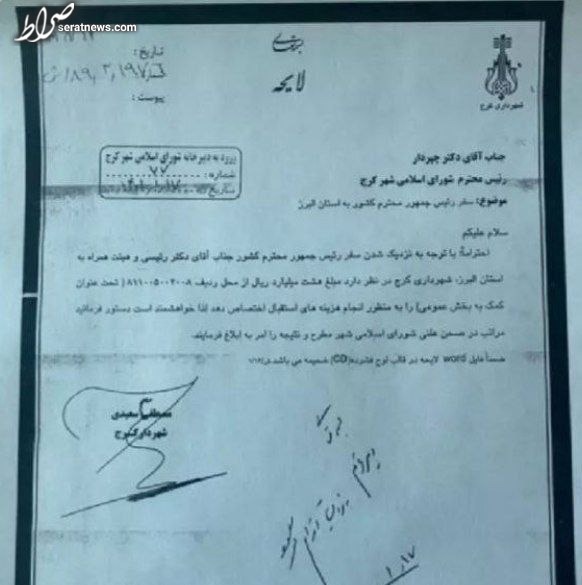 صراط
seratnews.com
بسمه تعالی
لایحه
تاریخ :
پیوست :
شهرداری کرج
ورود به دبیرخانه شورای اسلامی شهر کرج
شماره : ۷۷
تاریخ
جناب آقای دکتر چهردار
رئیس محترم شورای اسلامی شهر کرج
موضوع: سفر رئیس جمهور محترم کشور به استان البرز
سلام علیکم
احتراماً؛ با توجه به نزدیک شدن سفر رئیس جمهور محترم کشور جناب آقای دکتر رئیسی و هیئت همراه به
استان البرز، شهرداری کرج در نظر دارد مبلغ هشت میلیارد ریال از محل ردیف ۸۱۱۰۰۵۰۰۲۰۰۸ ( تحت عنوان
کمک به بخش عمومی) را به منظور انجام هزینه های استقبال اختصاص دهد لذا خواهشمند است دستور فرمائید
مراتب در صحن علنی شورای اسلامی شهر مطرح و نتیجه را امر به ابلاغ فرمایند.
ضمناً فایل word لایحه در قالب لوح فشرده(CD) ضمیمه می باشد.
مصطفی سعیدی
شهردار کرج